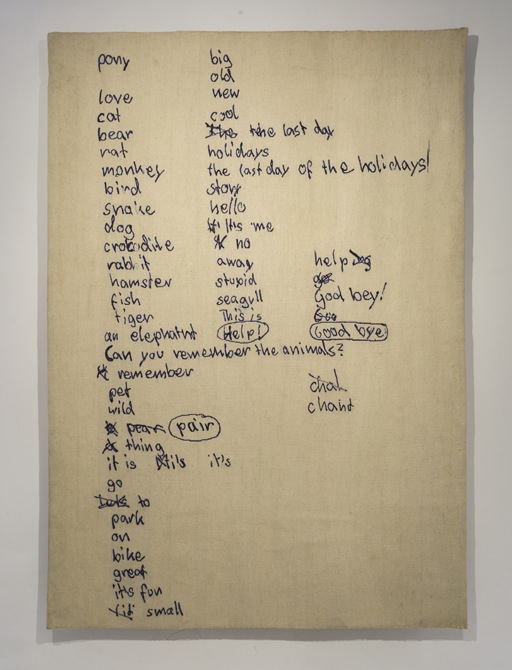 pony big
old
love new
cat cool
bear the last day
rat holidays
monkey the last day of the holidays!
bird story
snake hello
dog It's me
crocodile no
rabbit away help
hamster stupid
fish seagull Good bey!
tiger This is
an elephatnt Help! Good bye
Can you remember the animals?
remember
pet chal
wild chant
pear pair
thing
it is it's it's
go
to
park
on
bike
great
it's fun
small